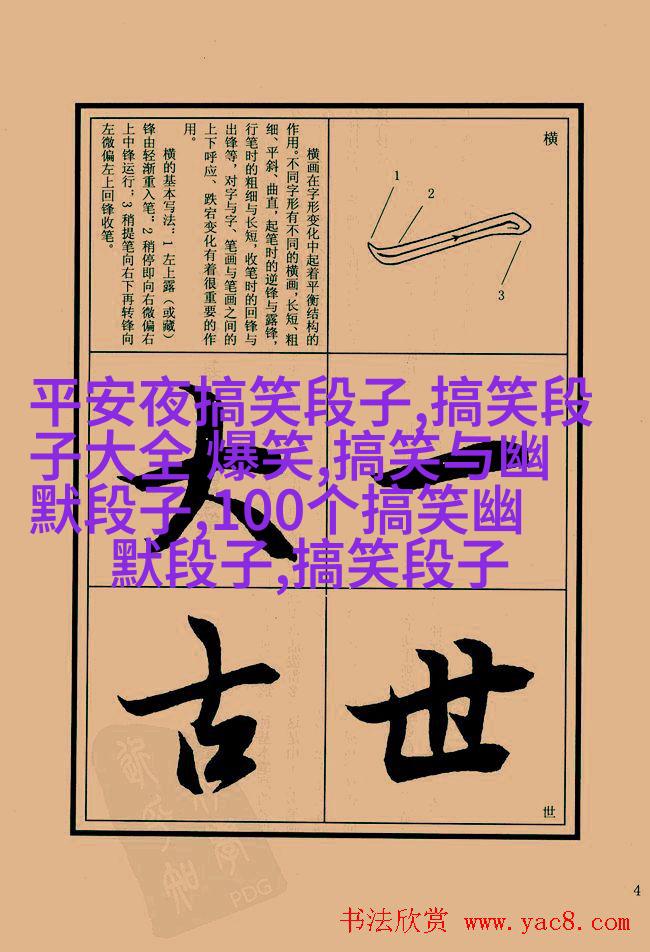 横
1
2
3
横画在字形变化中起着平衡结构的
作用。不同字形有不同的横画,长短、粗
细、平斜、曲直,起笔时的逆锋与露锋,
行笔时的粗细与长短,收笔时的回锋与
出锋等,对字与字、笔画与笔画之间的
上下呼应、跌宕变化有着很重要的作
用。
横的基本写法:1 左上露(或藏)
锋由轻渐重入笔;2 稍停即向右微偏右
上中锋运行;3 稍提笔向右下再转锋向
左微偏左上回锋收笔。
平安夜搞笑段子,搞笑段
子大全 爆笑,搞笑与幽
默段子,100个搞笑幽
默段子,搞笑段子
一
大
世
古
世
PDG
4
书法欣赏 www.yac8.com